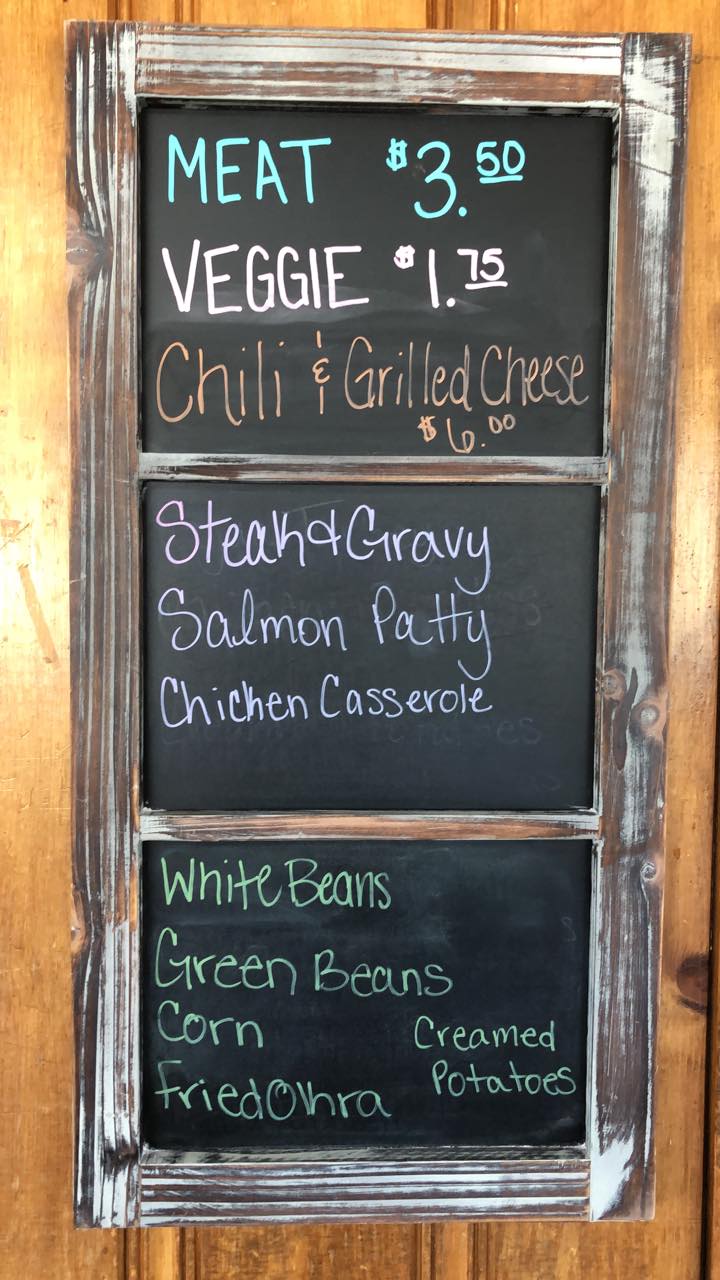 MEAT $3.50
VEGGIE $1.75
Chili & Grilled Cheese
$6.00
Steak & Gravy
Salmon Patty
Chicken Casserole
White Beans
Green Beans
Corn
Fried Okra
Creamed
Potatoes